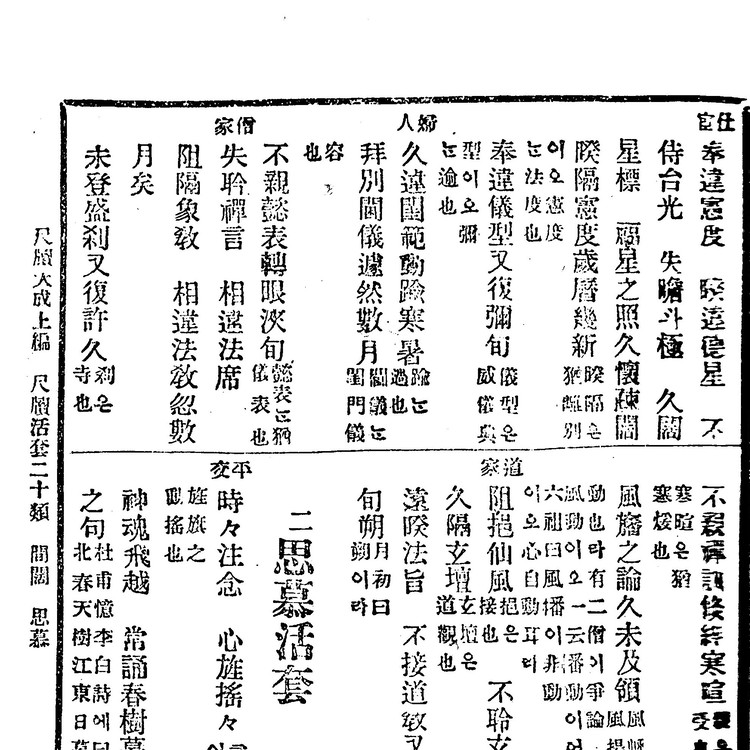 仕官
奉違憲度 睽違德星 不
侍台光 失瞻斗極 久闊
星標 福星之照久懷疎闊
睽隔憲度歲曆幾新 睽隔은猶離別
이오憲度
는法度也
奉違儀型又復彌旬 儀型은威儀典
型이오彌
는逾也
婦人
久違閨範動踰寒暑 踰는過也
拜別閫儀遽然數月 閫儀는閨門儀
容也
僧家
不親懿表轉眼浹旬 懿表는猶儀表也
失聆禪言 相違法席
阻隔象敎 相違法敎忽數
月矣
未登盛刹又復許久 刹은寺也
寒暄은猶
寒煖也
風旛之論久未及領
動也라有二僧이爭論
風動이오一云番動이어
六祖曰風播이非動
이오心自動耳라
道家
阻挹仙風 挹은接也 不聆玄
久隔玄壇 玄壇은道觀也
遠睽法旨 不接道敎又
旬朔 月初曰朔이라
二 思慕活套
平交
時々注念 心旌搖々
旌旗之
動搖也
神魂飛越 常誦春樹暮
之句 杜甫憶李白詩에曰
北春天樹江東日暮
尺牘大成上編 尺牘活套二十類 間闊 思慕